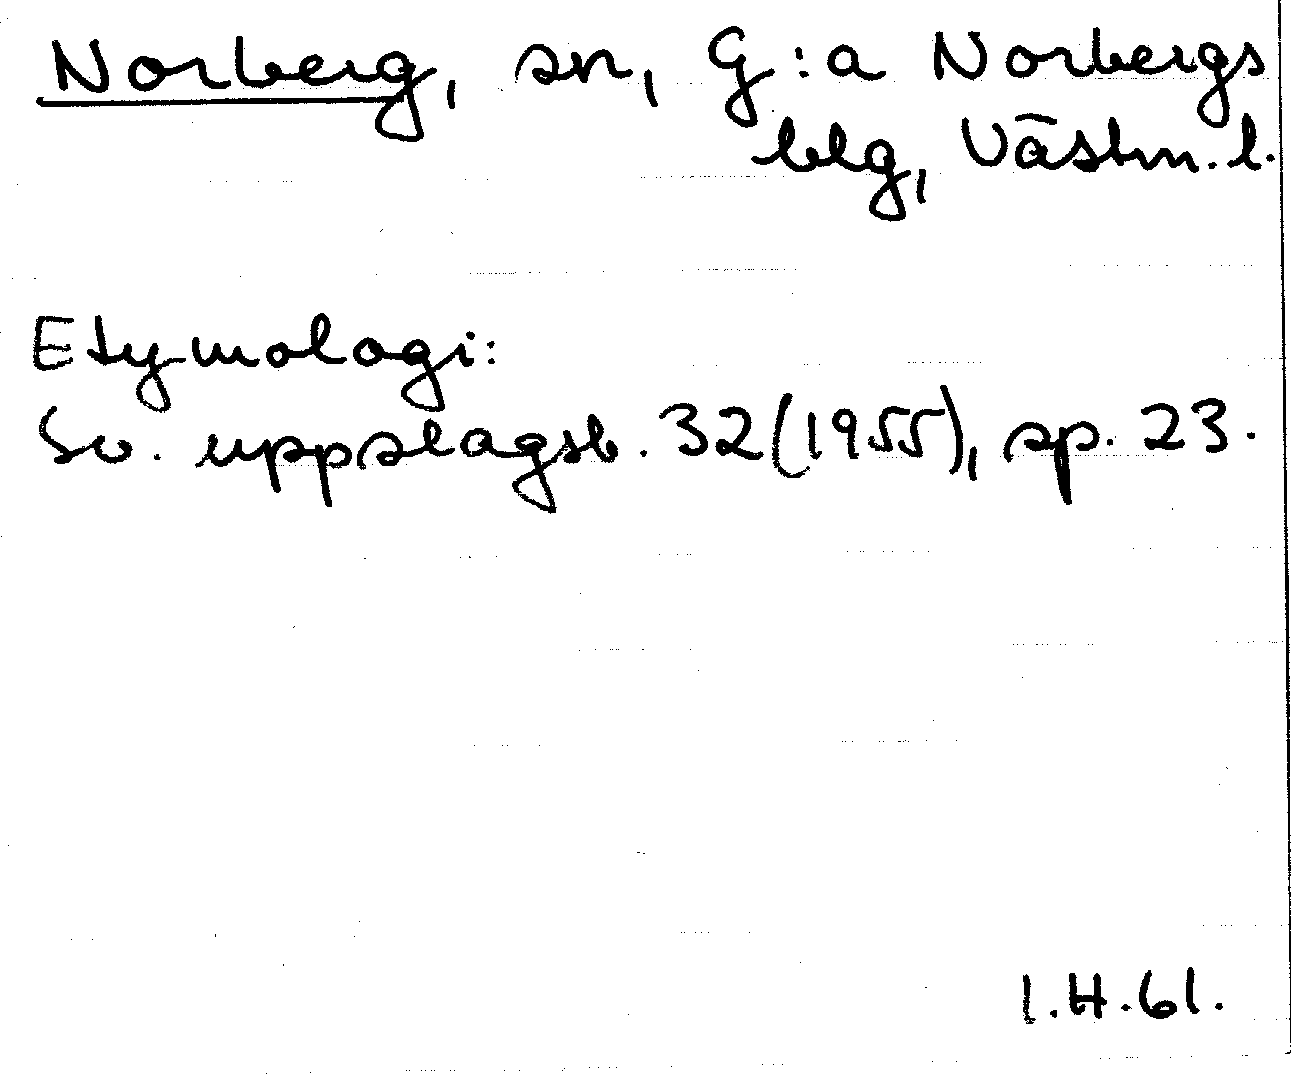 Norberg, sn, G:a Norbergs
blg, Västm. l.
Etymologi:
Sv. uppslagsb. 32(1955), sp. 23.
I.H.61.